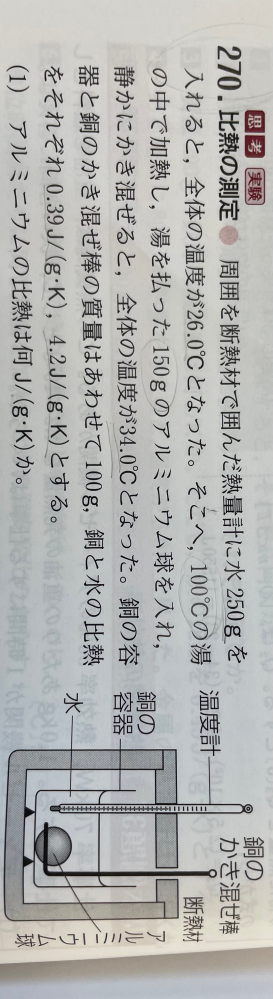 270. 思考 実験 比熱の測定 ● 周囲を断熱材で囲んだ熱量計に水 250g を
入れると，全体の温度が26.0℃となった。そこへ，100℃の湯
の中で加熱し，湯を払った 150g のアルミニウム球を入れ，
静かにかき混ぜると，全体の温度が34.0℃となった。銅の容
器と銅のかき混ぜ棒の質量はあわせて 100g，銅と水の比熱
をそれぞれ 0.39J/(g·K)，4.2J/(g·K)とする。
(1) アルミニウムの比熱は何 J/(g·K)か。
銅の
かき混ぜ棒
温度計
断熱材
銅の
容器
水
アルミニウム球